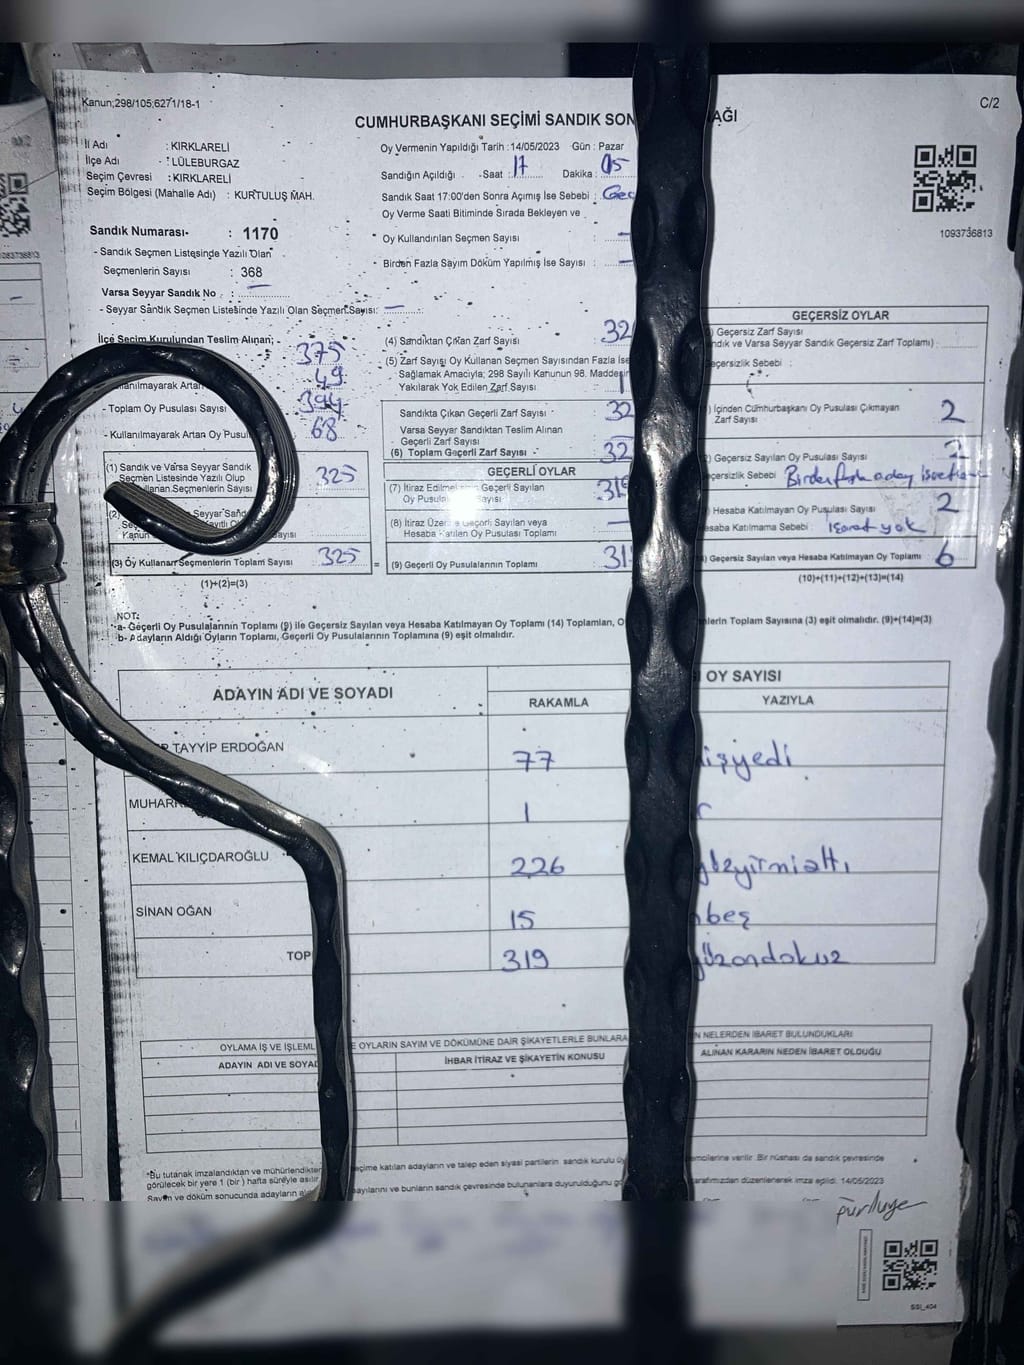 Kanun;298/105;6271/18-1
C/2
CUMHURBAŞKANI SEÇİMİ SANDIK SON AĞI
İl Adı : KIRKLARELİ
İlçe Adı : LÜLEBURGAZ
Seçim Çevresi : KIRKLARELİ
Seçim Bölgesi (Mahalle Adı) : KURTULUŞ MAH.
Oy Vermenin Yapıldığı Tarih : 14/05/2023 Gün : Pazar
Sandığın Açıldığı Saat : 17 Dakika : 05
Sandık Saat 17:00'den Sonra Açımış İse Sebebi :
Oy Verme Saati Bitiminde Sırada Bekleyen ve
Oy Kullandırılan Seçmen Sayısı : –
Birden Fazla Sayım Döküm Yapılmış İse Sayısı : –
1093736813
Sandık Numarası : 1170
- Sandık Seçmen Listesinde Yazılı Olan
Seçmenlerin Sayısı : 368
Varsa Seyyar Sandık No : –
- Seyyar Sandık Seçmen Listesinde Yazılı Olan Seçmen Sayısı: –
İlçe Seçim Kurulundan Teslim Alınan;
375
49
- Toplam Oy Pusulası Sayısı 394
- Kullanılmayarak Artan Oy Pusul 68
(1) Sandık ve Varsa Seyyar Sandık
Seçmen Listesinde Yazılı Olup
Kullanan Seçmenlerin Sayısı 325
(3) Oy Kullanan Seçmenlerin Toplam Sayısı 325 =
(1)+(2)=(3)
(4) Sandıktan Çıkan Zarf Sayısı 32
(5) Zarf Sayısı Oy Kullanan Seçmen Sayısından Fazla İse
Sağlamak Amacıyla; 298 Sayılı Kanunun 98. Maddesi
Yakılarak Yok Edilen Zarf Sayısı
Sandıkta Çıkan Geçerli Zarf Sayısı 32
Varsa Seyyar Sandıktan Teslim Alınan
Geçerli Zarf Sayısı
(6) Toplam Geçerli Zarf Sayısı 32
GEÇERLİ OYLAR
(7) İtiraz Edilmeksizin Geçerli Sayılan
Oy Pusula 319
(8) İtiraz Üzerine Geçerli Sayılan veya
Hesaba Katılan Oy Pusulası Toplamı –
(9) Geçerli Oy Pusulalarının Toplamı 31
GEÇERSİZ OYLAR
Geçersiz Zarf Sayısı
ndık ve Varsa Seyyar Sandık Geçersiz Zarf Toplamı) :
eçersizlik Sebebi :
İçinden Cumhurbaşkanı Oy Pusulası Çıkmayan
Zarf Sayısı 2
Geçersiz Sayılan Oy Pusulası Sayısı 2
eçersizlik Sebebi : Birden fazla aday
Hesaba Katılmayan Oy Pusulası Sayısı 2
esaba Katılmama Sebebi : işaret yok
Geçersiz Sayılan veya Hesaba Katılmayan Oy Toplamı 6
(10)+(11)+(12)+(13)=(14)
NOT:
a- Geçerli Oy Pusulalarının Toplamı (9) ile Geçersiz Sayılan veya Hesaba Katılmayan Oy Toplamı (14) Toplamları, O nlerin Toplam Sayısına (3) eşit olmalıdır. (9)+(14)=(3)
b- Adayların Aldığı Oyların Toplamı, Geçerli Oy Pusulalarının Toplamına (9) eşit olmalıdır.
ADAYIN ADI VE SOYADI
OY SAYISI
RAKAMLA YAZIYLA
TAYYİP ERDOĞAN 77 işyedi
MUHARR 1 r
KEMAL KILIÇDAROĞLU 226 yüzyirmialtı
SİNAN OĞAN 15 nbeş
TOP 319 yüzondokuz
OYLAMA İŞ VE İŞLEML E OYLARIN SAYIM VE DÖKÜMÜNE DAİR ŞİKAYETLERLE BUNLARA N NELERDEN İBARET BULUNDUKLARI
ADAYIN ADI VE SOYAD İHBAR İTİRAZ VE ŞİKAYETİN KONUSU ALINAN KARARIN NEDEN İBARET OLDUĞU
*Bu tutanak imzalandıktan ve mühürlendikten eçime katılan adayların ve talep eden siyasi partilerin sandık kurulu üy emcilerine verilir. Bir nüshası da sandık çevresinde
görülecek bir yere 1 (bir) hafta süreyle asılır.
Sayım ve döküm sonucunda adayların al sayılarını ve bunların sandık çevresinde bulunanlara duyurulduğunu gö arafımızdan düzenlenerek imza edildi. 14/05/2023
SSİ_404